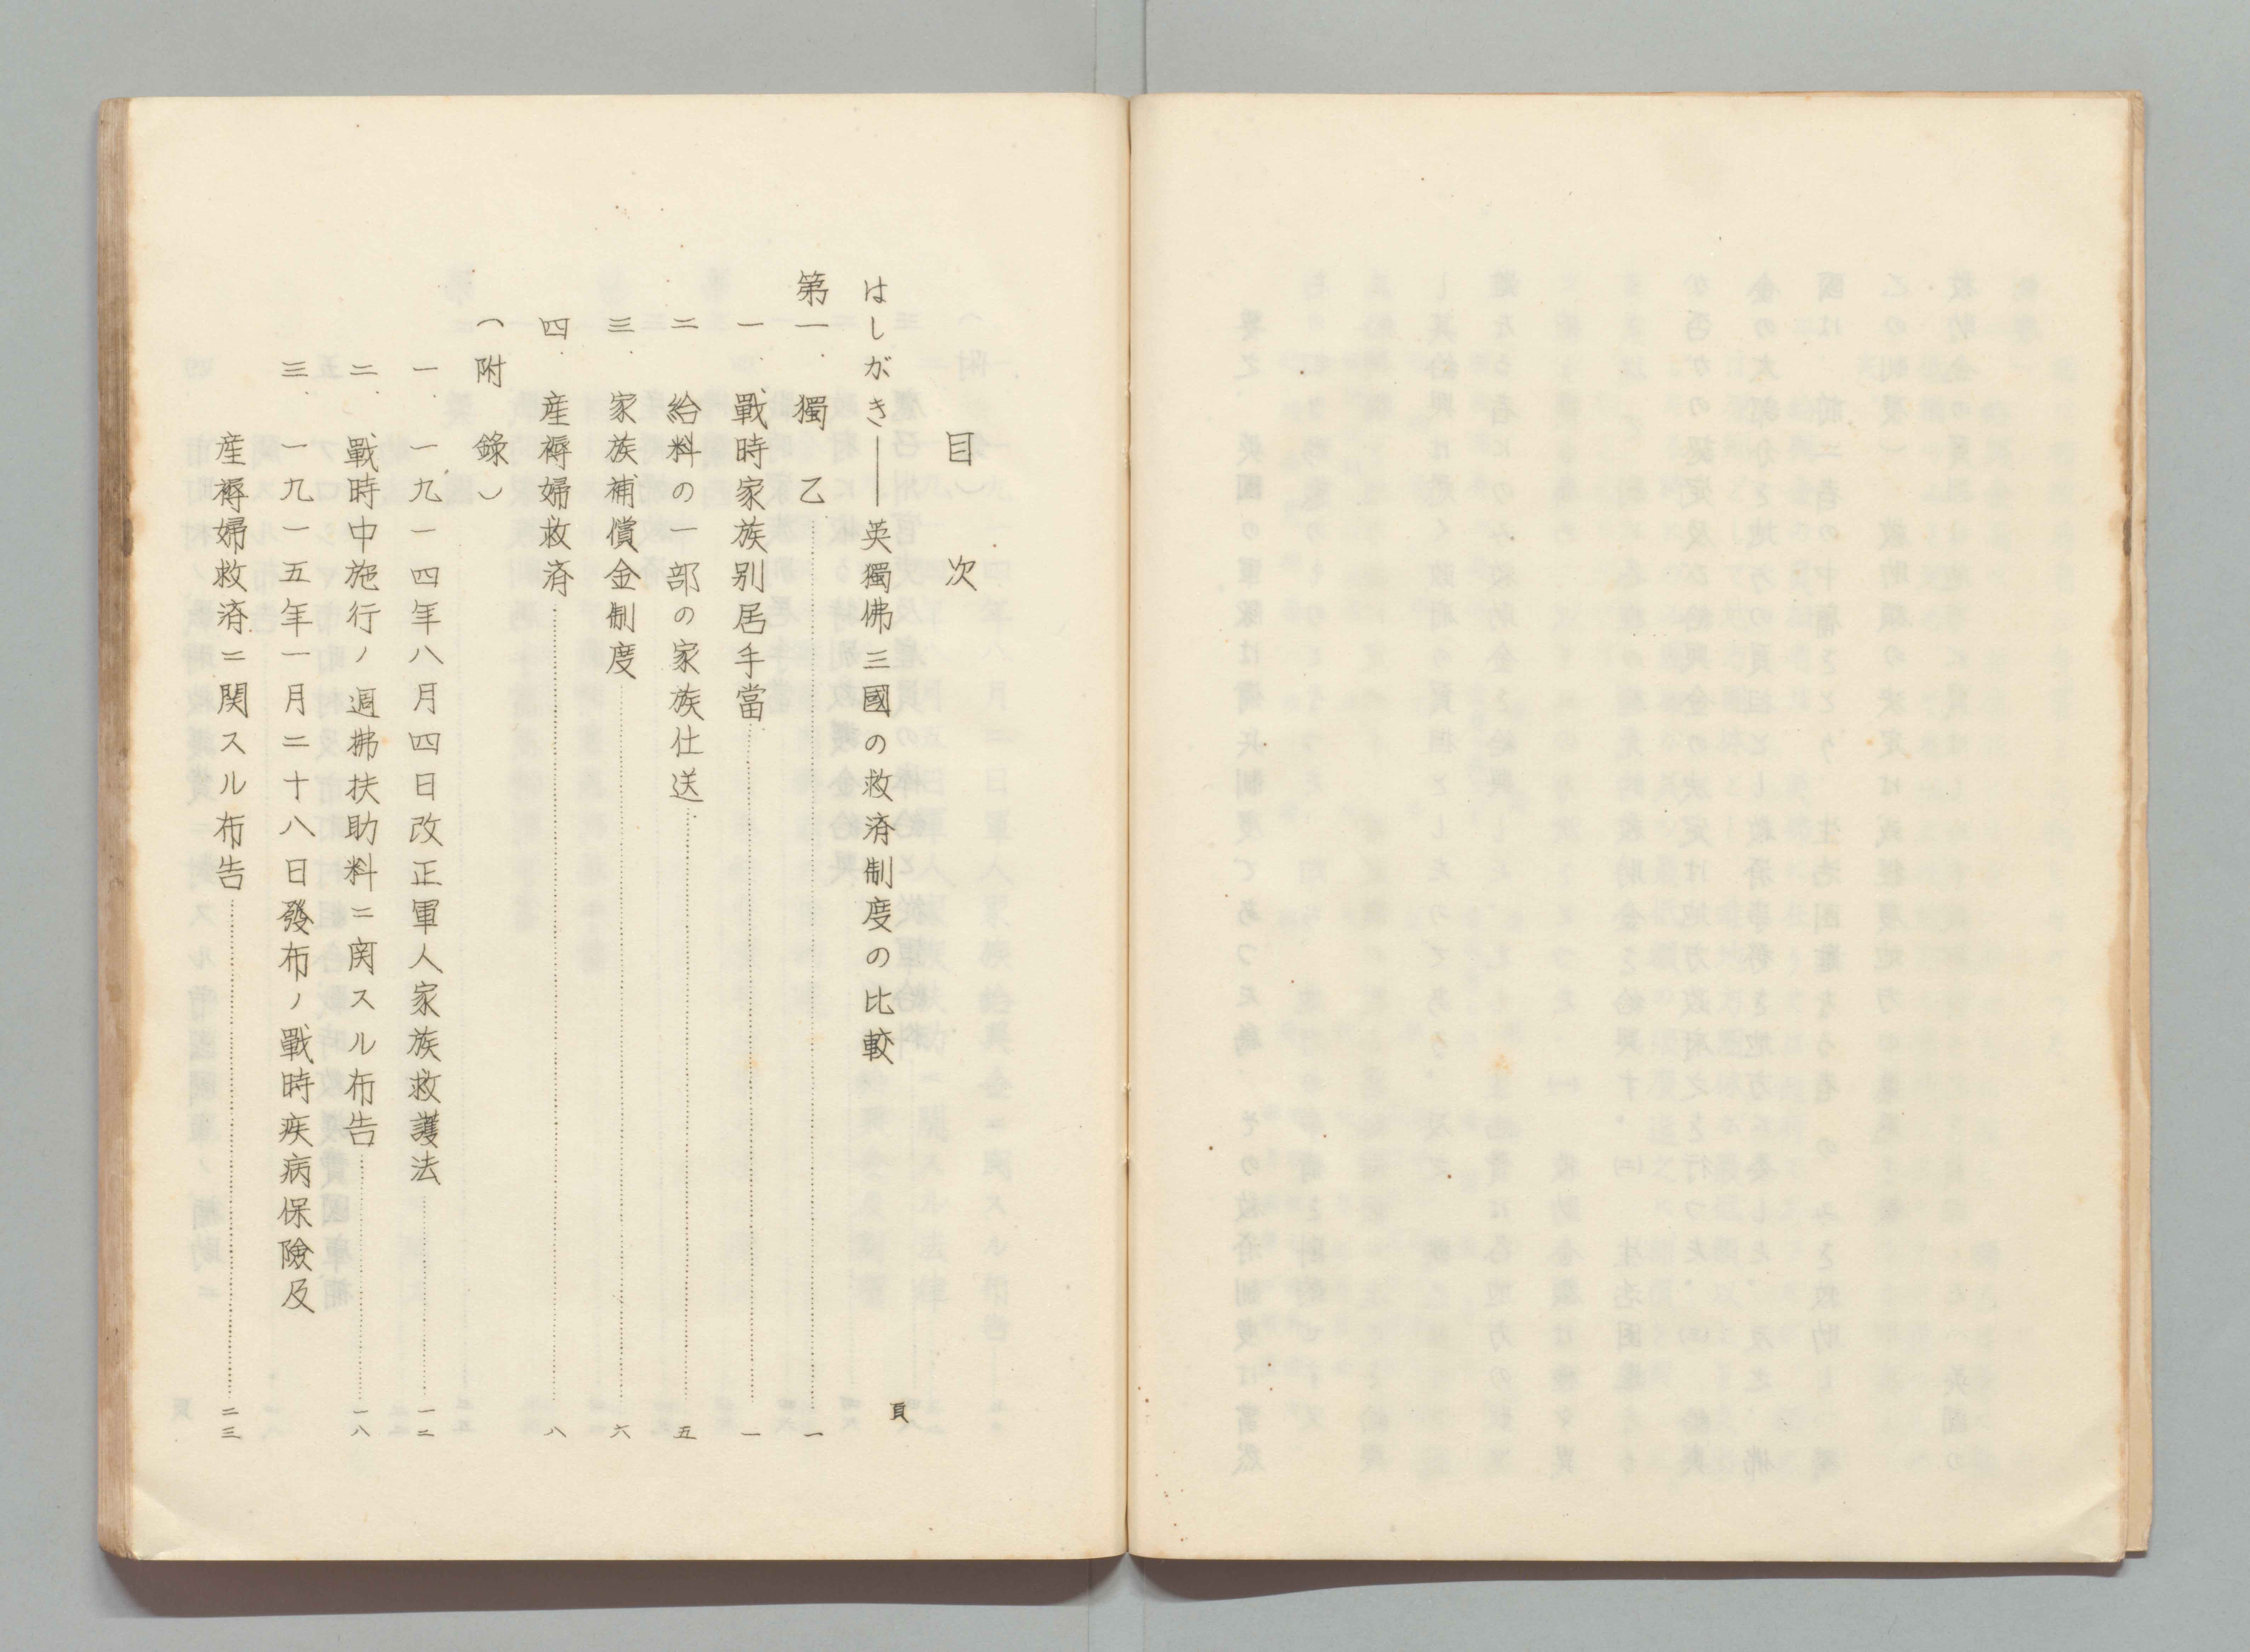 目次
頁
はしがき――英獨佛三國の救済制度の比較
第一．獨乙……一
一．戰時家族別居手當……一
二．給料の一部の家族仕送……五
三．家族補償金制度……六
四．産褥婦救済……八
（附錄）
一．一九一四年八月四日改正軍人家族救護法……一二
二．戰時中施行ノ週拂扶助料ニ関スル布告……一八
三．一九一五年一月二十八日發布ノ戰時疾病保險及
産褥婦救済ニ関スル布告……二三